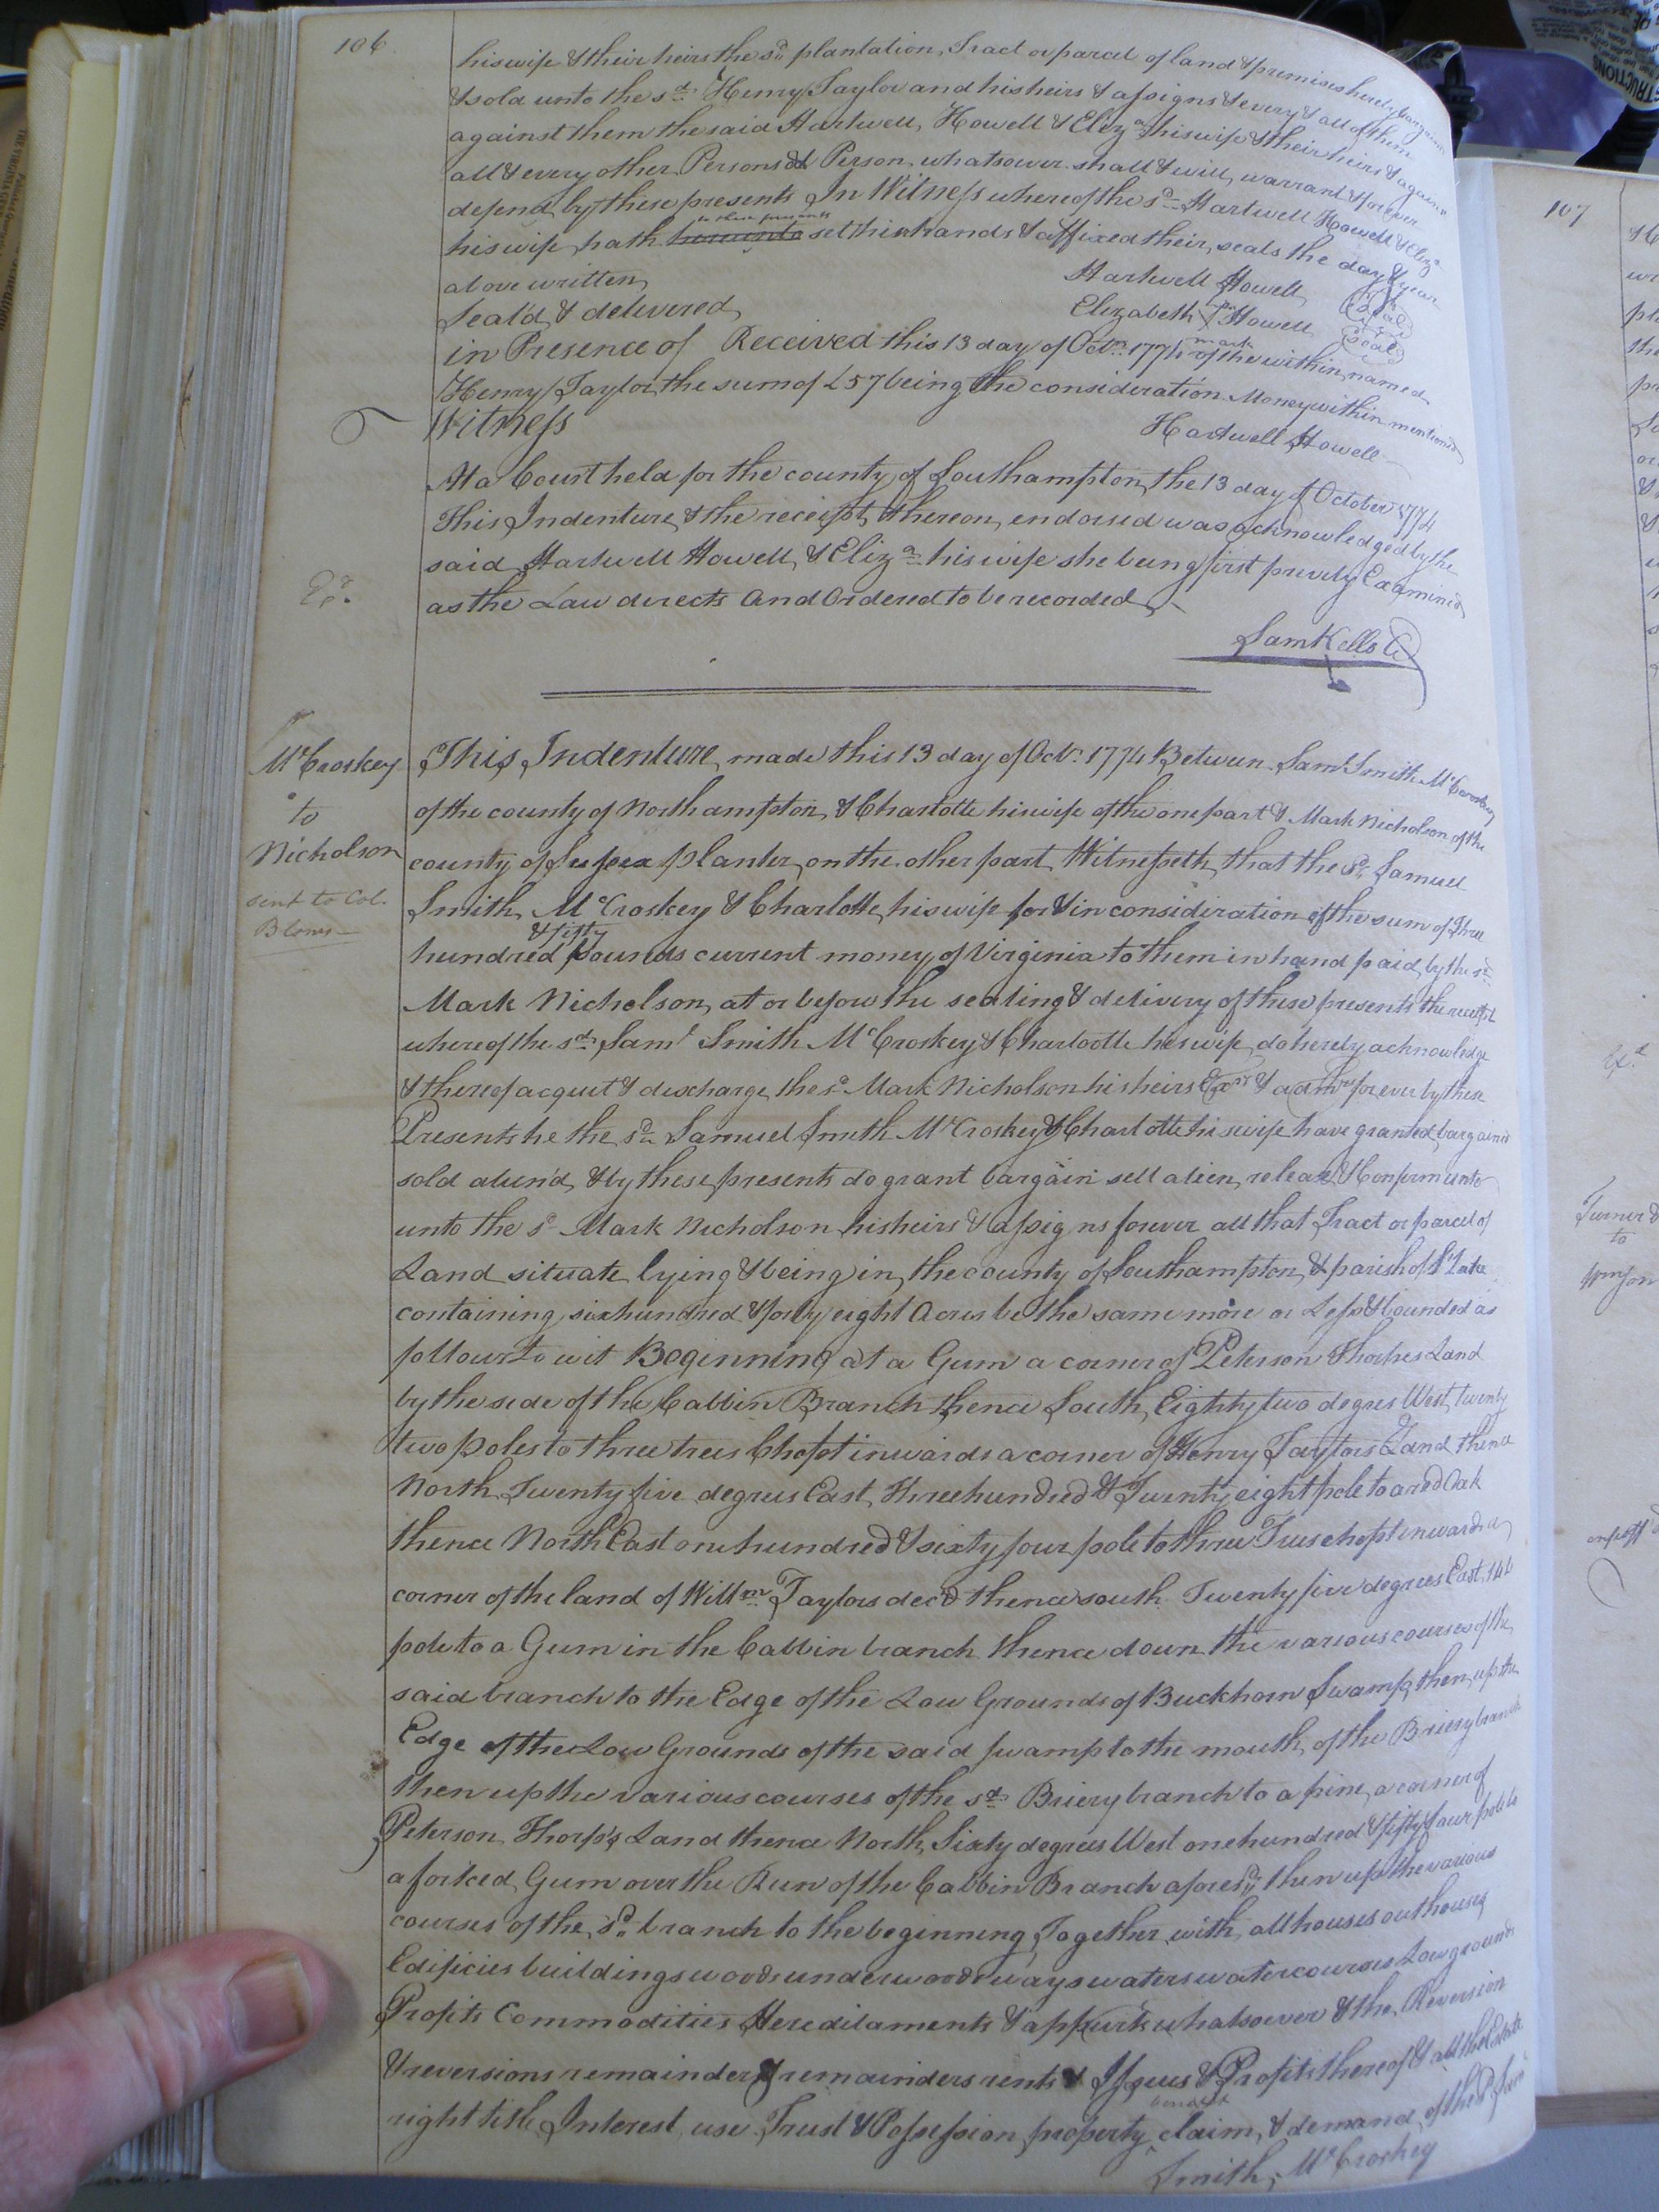 106.
his wife & their heirs the sd. plantation, Tract or parcel of land & premises hereby bargained
& sold unto the sd. Henry Taylor and his heirs & assigns & every & all of them
against them the said Hartwell, Howell & Eliza. his wife & their heirs & against
all & every other Persons Person whatsower shall & will, warrant & forever
defend by these presents In Witness whereof the sd. Hartwell Howell & Eliza
to these presents
his wife hath hereunto set their hands & affixed their seals the day & year
above written
Hartwell Howell (Seal)
Seal'd & delivered
Elizabeth Howell (Seal)
mark
in Presence of Received this 13 day of Octr. 1774 of the within named
Henry Taylor the sum of £57 being the consideration Money within mentioned
Witness
Hartwell Howell
At a Court held for the county of Southampton the 13 day of October 1774
This Indenture & the receipt thereon endorsed was acknowledged by the
said Hartwell Howell, & Eliza. his wife she being first privily Examined
as the Law directs And Ordered to be recorded
Ex.
Sam Kello C
McCroskey
to
Nicholson
sent to Col.
Blows
This Indenture made this 13 day of Octr. 1774 Between Saml. Smith McCroskey
of the county of Northampton, & Charlotte his wife of the one part & Mark Nicholson of the
county of Sussex planter on the other part Witnesseth, that the sd. Samuel
Smith McCroskey & Charlotte his wife for & in consideration of the sum of Three
& fifty
hundred pounds current money of Virginia to them in hand paid by the sd.
Mark Nicholson, at or before the sealing & delivery of these presents the receipt
whereof the sd. Saml Smith McCroskey & Charlootte his wife do hereby acknowledge
& thereof acquit & discharge the sd. Mark Nicholson his heirs Exrs & admrs forever by these
Presents he the sd. Samuel Smith McCroskey & Charlotte his wife have granted, bargain'd
sold alien'd, & by these presents do grant bargain sell alien, release & Confirm unto
unto the sd Mark Nicholson his heirs & assigns forever all that Tract or parcel of
Land situate lying & being in the county of Southampton, & parish of St Luke
containing six hundred & forty eight Acres be the same more or Less & bounded as
follows to wit Beginning at a Gum a corner of Peterson Thorpes Land
by the side of the Cabbin Branch thence South, Eighty two degrees West, twenty
two poles to three trees Chopt inwards a corner of Henry Taylors Land thence
North Twenty five degrees East, three hundred & Twenty eight pole to a red Oak
thence North East one hundred & sixty four pole to three Trees chopt inwards a
corner of the land of Willm. Taylors dec'd thence south Twenty five degrees East 146
pole to a Gum in the Cabbin branch thence down the various courses of the
said branch to the Edge of the Low Grounds of Buckhorn Swamp, then up the
Edge of the Low Grounds of the said swamp to the mouth of the Briery branch
then up the various courses of the sd. Briery branch to a pine, a corner of
Peterson Thorp's Land thence North, Sixty degrees West one hundred & fifty four pole to
a forked Gum over the Run of the Cabbin Branch aforesd. then up the various
courses of the sd. branch to the beginning Together with, all houses outhouses
Edificies buildings woods underwoods ways waters watercourses Low grounds
Profits Commodities Hereditaments & appurts whatsoever & the Reversion
& reversions remainder & remainders rents & Issues & Profits thereof & all the Estate
benefit
right title Interest use Trust & Possession property claim, & demand of the sd. Saml
Smith, McCroskey
107
Ex.d
Turner &
to